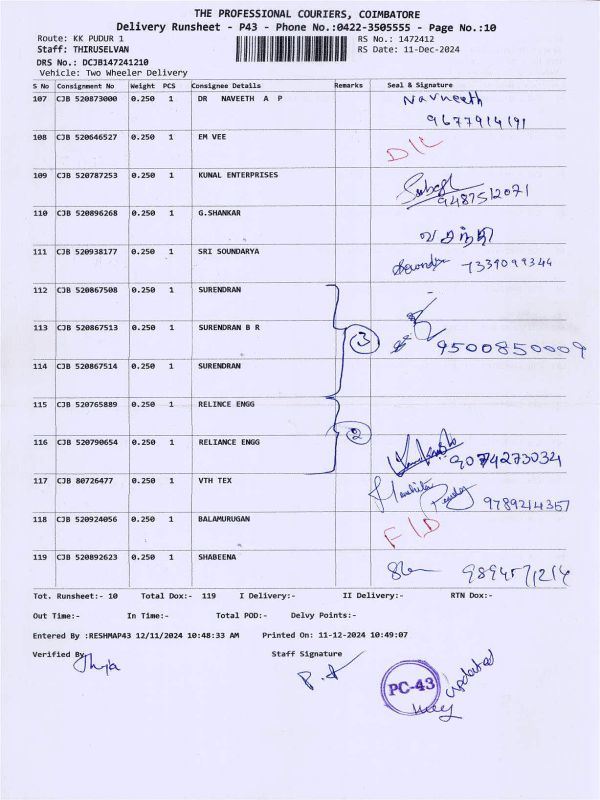 THE PROFESSIONAL COURIERS, COIMBATORE
Delivery Runsheet - P43 - Phone No.:0422-3505555 - Page No.:10
Route: KK PUDUR 1 RS No.: 1472412
Staff: THIRUSELVAN RS Date: 11-Dec-2024
DRS No.: DCJB147241210
Vehicle: Two Wheeler Delivery
S No Consignment No Weight PCS Consignee Details Remarks Seal & Signature
107 CJB 520873000 0.250 1 DR NAVEETH A P Navneeth
9677914191
108 CJB 520646527 0.250 1 EM VEE D/L
109 CJB 520787253 0.250 1 KUNAL ENTERPRISES
9487512071
110 CJB 520896268 0.250 1 G.SHANKAR வசந்தி
111 CJB 520938177 0.250 1 SRI SOUNDARYA 7339099344
112 CJB 520867508 0.250 1 SURENDRAN
113 CJB 520867513 0.250 1 SURENDRAN B R 3 9500850009
114 CJB 520867514 0.250 1 SURENDRAN
115 CJB 520765889 0.250 1 RELINCE ENGG
2
116 CJB 520790654 0.250 1 RELIANCE ENGG 9074273034
117 CJB 80726477 0.250 1 VTH TEX 9789214357
118 CJB 520924056 0.250 1 BALAMURUGAN F/D
119 CJB 520892623 0.250 1 SHABEENA
Tot. Runsheet:- 10 Total Dox:- 119 I Delivery:- II Delivery:- RTN Dox:-
Out Time:- In Time:- Total POD:- Delvy Points:-
Entered By :RESHMAP43 12/11/2024 10:48:33 AM Printed On: 11-12-2024 10:49:07
Verified By Staff Signature
PC-43
updated